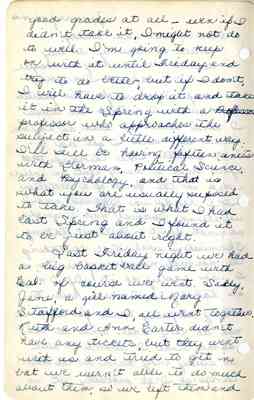 good grades at all - even if I
didn't take it, I might not do
so well. I'm going to keep
on with it until Friday and
try to do better, but if I don't,
I will have to drop it and take
it in the Spring with a
professor who approaches the
subject in a little different way.
I'll still be having fifteen units
with German, Political Science,
and Psychology, and that is
what you are usually supposed
to take. That is what I had
last Spring and I found it
to be just about right.
Last Friday night we had
a big basketball game with
Cal. Of course we went. Sally,
Jane, a girl named Marge
Stafford and I, all went together.
Ruth and Ann Carter didn't
have any tickets, but they went
with us and tried to get in
but we weren't able to do much
about them, so we left them and